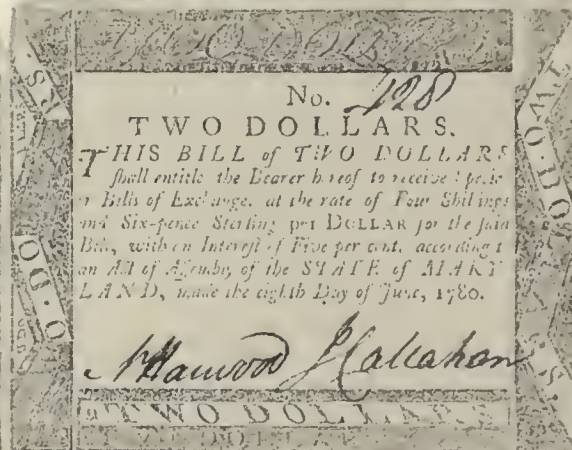 TWO DOLLARS
No. 428
TWO DOLLARS.
THIS BILL of TWO DOLLARS
shall entitle the Bearer hereof to receive Specie
r Bills of Exchange, at the rate of Four Shillings
and Six-pence Sterling per DOLLAR for the said
Bill, with an Interest of Five per cent. according t
an Act of Assembly of the STATE of MARY
LAND, made the eighth Day of June, 1780.
N Harwood J Callahan
TWO DOLLARS